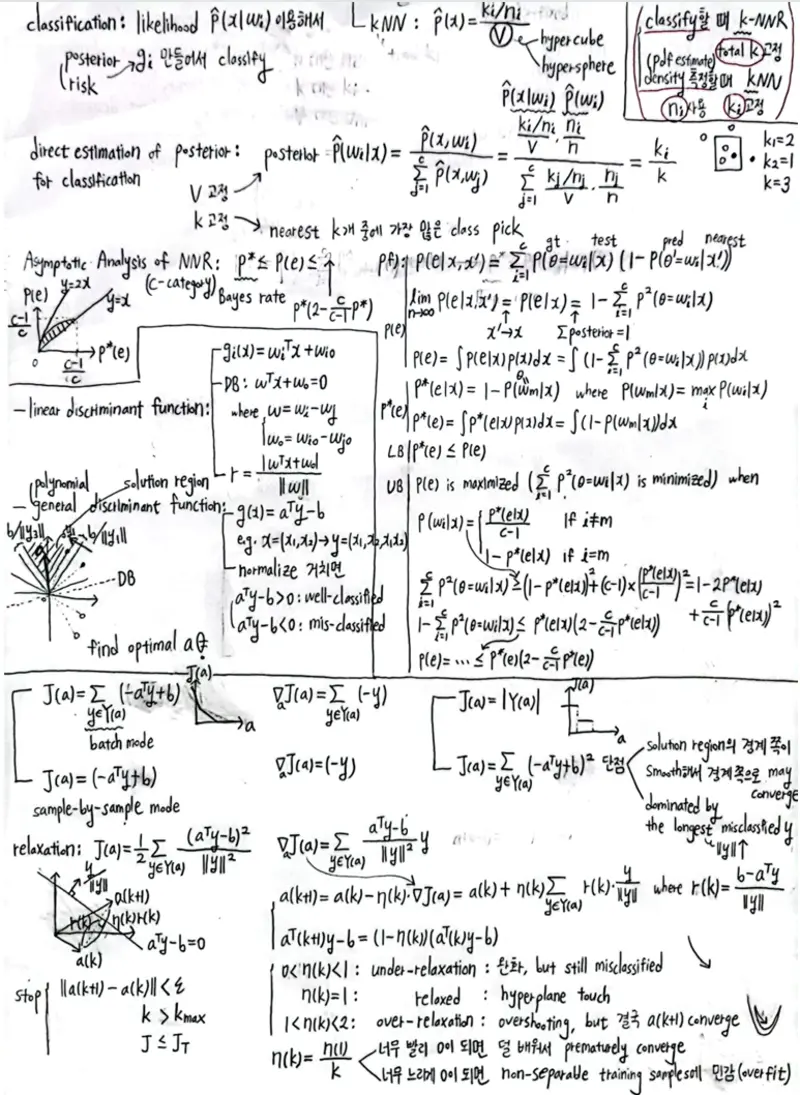 classification: likelihood P̂(x|wi) 이용해서
posterior
risk → gi 만들어서 classify
kNN: P̂(x) = (ki/ni)/V
hypercube
hypersphere
classify할 때 k-NNR
total k 고정
(pdf estimate)
density 측정할때 kNN
ni 사용 ki 고정
direct estimation of posterior:
for classification
posterior P̂(wi|x) = P̂(x,wi) / Σ_{j=1}^{c} P̂(x,wj) = P̂(x|wi) P̂(wi) (ki/ni)/V · ni/n / Σ_{j=1}^{c} (kj/nj)/V · nj/n = ki/k
k1=2
k2=1
k=3
V 고정
k 고정 → nearest k개 중에 가장 많은 class pick
Asymptotic Analysis of NNR: P* ≤ P(e) ≤
(c-category)
Bayes rate
P*(2 - c/(c-1) P*)
P(e)
y=2x
y=x
(c-1)/c
0
(c-1)/c
P*(e)
pf): P(e|x,x') = Σ_{i=1}^{c} P(θ=wi|x) (1-P(θ'=wi|x'))
gt test pred nearest
P(e)
lim_{n→∞} P(e|x,x') = P(e|x) = 1 - Σ_{i=1}^{c} P²(θ=wi|x)
x'→x Σposterior=1
P(e) = ∫P(e|x)p(x)dx = ∫(1-Σ_{i=1}^{c} P²(θ=wi|x))p(x)dx
P*(e)
P*(e|x) = 1 - P(wm|x) where P(wm|x) = max_i P(wi|x)
P*(e) = ∫P*(e|x)p(x)dx = ∫(1-P(wm|x))dx
LB P*(e) ≤ P(e)
UB P(e) is maximized (Σ_{i=1}^{c} P²(θ=wi|x) is minimized) when
P(wi|x) = P*(e|x)/(c-1) if i≠m
1-P*(e|x) if i=m
Σ_{i=1}^{c} P²(θ=wi|x) ≥ (1-P*(e|x))² + (c-1)×(P*(e|x)/(c-1))² = 1-2P*(e|x)
+ c/(c-1) (P*(e|x))²
1-Σ_{i=1}^{c} P²(θ=wi|x) ≤ P*(e|x)(2 - c/(c-1) P*(e|x))
P(e) = ... ≤ P*(e)(2 - c/(c-1) P*(e))
- linear discriminant function:
gi(x) = wiᵀx + wi0
DB: wᵀx+w0=0
where w = wi - wj
w0 = wi0 - wj0
r = |wᵀx+w0| / ||w||
polynomial
solution region
- general discriminant function:
g(x) = aᵀy - b
e.g. x=(x1,x2) → y=(x1,x2,x1x2)
normalize 거치면
aᵀy-b>0: well-classified
aᵀy-b<0: mis-classified
b/||y2||
b/||y1||
DB
find optimal a
J(a) = Σ_{y∈Y(a)} (-aᵀy+b)
batch mode
J(a)
a
∇aJ(a) = Σ_{y∈Y(a)} (-y)
J(a) = (-aᵀy+b)
sample-by-sample mode
∇aJ(a) = (-y)
J(a) = |Y(a)|
J(a)
a
J(a) = Σ_{y∈Y(a)} (-aᵀy+b)² 단점
solution region의 경계 쪽이
smooth해서 경계쪽으로 may
converge
dominated by
the longest misclassified y
||y||↑
relaxation: J(a) = 1/2 Σ_{y∈Y(a)} (aᵀy-b)²/||y||²
∇aJ(a) = Σ_{y∈Y(a)} (aᵀy-b)/||y||² y
a(k+1) = a(k) - η(k)·∇J(a) = a(k) + η(k) Σ_{y∈Y(a)} r(k)· y/||y|| where r(k) = (b-aᵀy)/||y||
aᵀ(k+1)y-b = (1-η(k))(aᵀ(k)y-b)
y/||y||
a(k+1)
r(k)
η(k)r(k)
aᵀy-b=0
a(k)
0<η(k)<1: under-relaxation: 완화, but still misclassified
η(k)=1: relaxed: hyperplane touch
1<η(k)<2: over-relaxation: overshooting, but 결국 a(k+1) converge
stop
||a(k+1) - a(k)|| < ε
k > kmax
J ≤ JT
η(k) = η(1)/k
너무 빨리 0이 되면 덜 배워서 prematurely converge
너무 느리게 0이 되면 non-separable training sample에 민감(overfit)